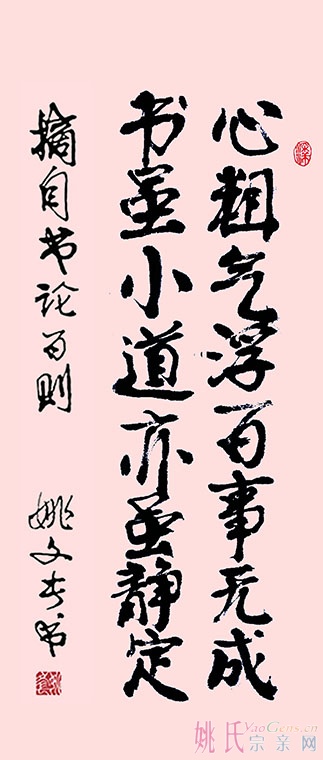 心粗气浮百事无成
书虽小道亦宜静定
摘自书论百则
姚文书
姚氏宗亲网
YaoGens.cn